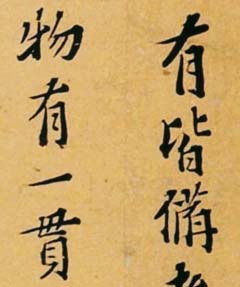 有皆備
物有一貫